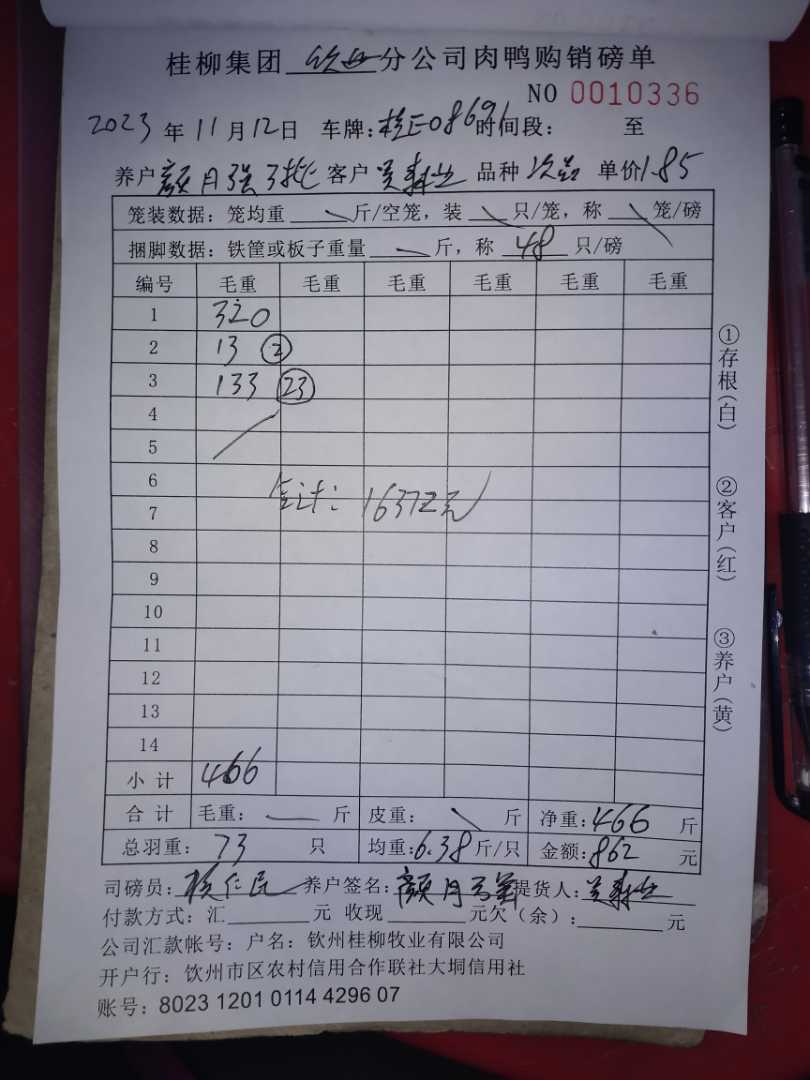 桂柳集团 分公司肉鸭购销磅单
NO 0010336
2023 年 11 月 12 日 车牌: 08691 时间段: 至
养户 颜月强 客户 品种 次品 单价 1.85
笼装数据:笼均重 斤/空笼,装 只/笼,称 笼/磅
捆脚数据:铁筐或板子重量 斤,称 48 只/磅
编号 毛重 毛重 毛重 毛重 毛重 毛重
1 320
2 13 ②
3 133 ㉓
4
5
6
合计: 16372元
7
8
9
10
11
12
13
14
小计 466
合计 毛重: 斤 皮重: 斤 净重: 466 斤
总羽重: 73 只 均重: 6.38 斤/只 金额: 862 元
司磅员: 养户签名: 颜月强 提货人:
付款方式:汇 元 收现 元欠(余): 元
公司汇款帐号:户名:钦州桂柳牧业有限公司
开户行:钦州市区农村信用合作联社大垌信用社
账号:8023 1201 0114 4296 07
①存根(白)
②客户(红)
③养户(黄)